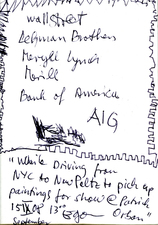 wallstreet
Lehman Brothers
Meryll Lynch
Merill
Bank of America
AIG
"While Driving from
NYC to New Paltz to pick up
paintings for show @ Patrick
15 of 13
September